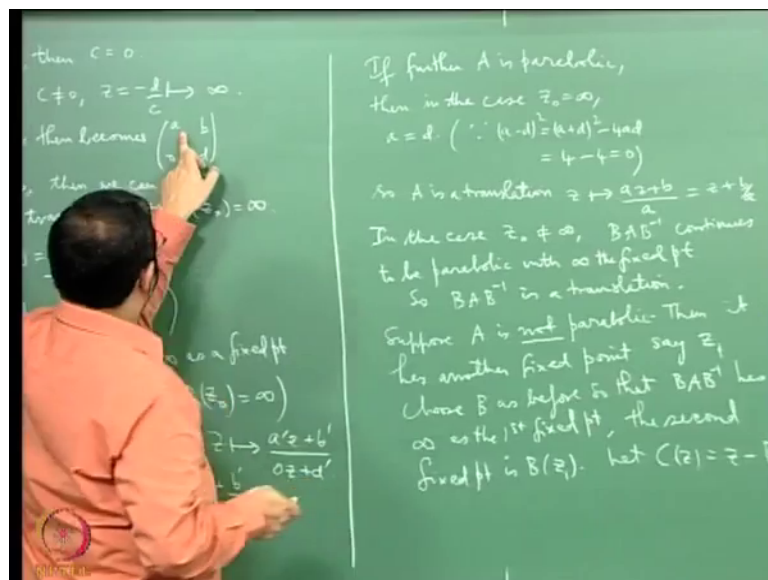 then C = 0
C ≠ 0, z = -d/c ↦ ∞.
then becomes (a b
0 d)
, then we can
(z₀) = ∞.
∞ as a fixed pt
B(z₀) = ∞)
z ↦ a'z + b' / 0z + d'
+ b'
If further A is parabolic,
then in the case z₀ = ∞,
a = d. (∵ (a-d)² = (a+d)² - 4ad
= 4 - 4 = 0)
So A is a translation z ↦ az+b / a = z + b/a
In the case z₀ ≠ ∞, BAB⁻¹ continues
to be parabolic with ∞ the fixed pt
So BAB⁻¹ is a translation.
Suppose A is not parabolic. Then it
has another fixed point say z₁
Choose B as before so that BAB⁻¹ has
∞ as the 1st fixed pt, the second
fixed pt is B(z₁). Let C(z) = z - B